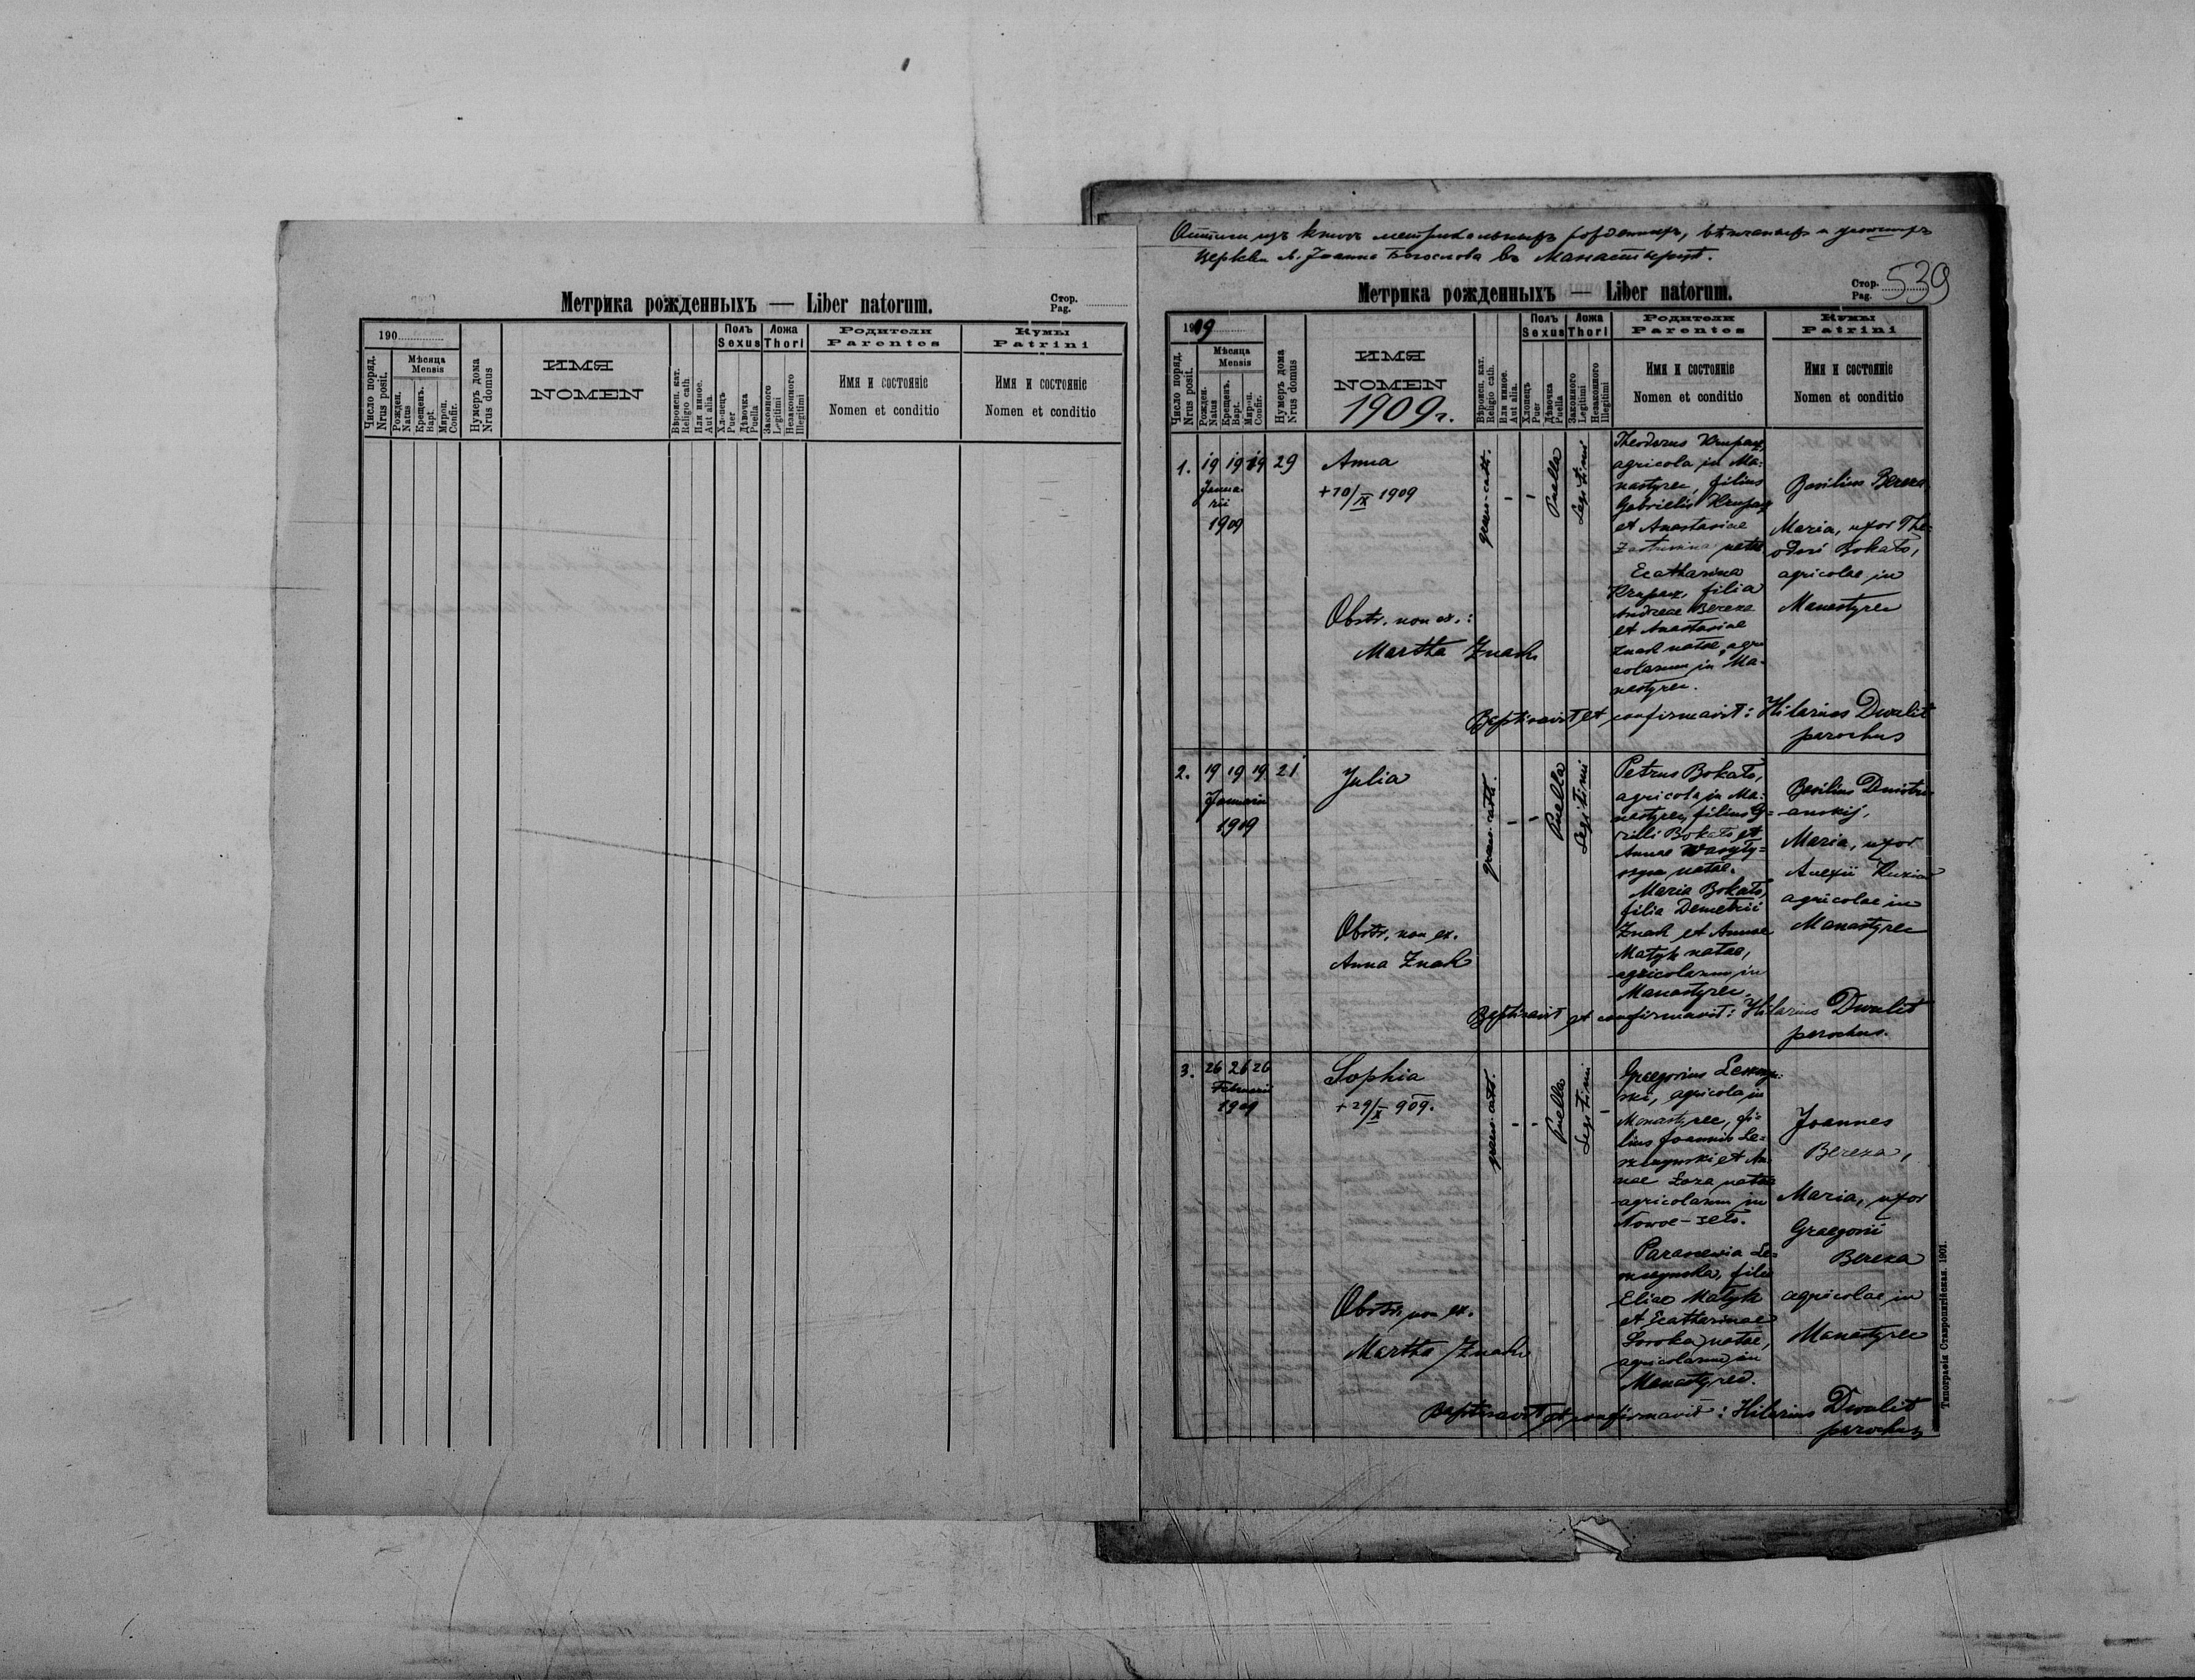 Метрика рожденныхъ — Liber natorum.
Стор.
Pag.
190
Число поряд.
Nrus posit.
Мѣсяца
Mensis
Рожден.
Natus
Крещенъ.
Bapt.
Мѵроп.
Confir.
Нумеръ дома
Nrus domus
ИМЯ
NOMEN
Вѣроисп. кат.
Religio cath.
Или инное.
Aut alia.
Полъ
Sexus
Хлопецъ
Puer
Дѣвочка
Puella
Ложа
Thori
Законного
Legitimi
Незаконного
Illegitimi
Родители
Parentes
Имя и состояніе
Nomen et conditio
Кумы
Patrini
Имя и состояніе
Nomen et conditio
церкви Іоанна Богослова въ
Метрика рожденныхъ — Liber natorum.
Стор.
Pag.
539
1909
Число поряд.
Nrus posit.
Мѣсяца
Mensis
Рожден.
Natus
Крещенъ.
Bapt.
Мѵроп.
Confir.
Нумеръ дома
Nrus domus
ИМЯ
NOMEN
1909г.
Вѣроисп. кат.
Religio cath.
Или инное.
Aut alia.
Полъ
Sexus
Хлопецъ
Puer
Дѣвочка
Puella
Ложа
Thori
Законного
Legitimi
Незаконного
Illegitimi
Родители
Parentes
Имя и состояніе
Nomen et conditio
Кумы
Patrini
Имя и состояніе
Nomen et conditio
1. 19 19 19 29
Janua
rii
1909
Anna
+10/IX 1909
graeco-cath.
- -
Puella
Legitimi
Theodorus
agricola in Ma-
nastyrec, filius
Gabrielis
et Anastasiae
natae
Ecatharina
filia
Andreae Bereza
et Anastasiae
Znak natae, agri
colarum in Ma-
nastyrec.
Basilius Bereza
Maria, uxor The-
odori Bokało,
agricolae in
Manastyrec
Obstr. non ex.:
Martha Znak
Baptisavit et confirmavit: Hilarius Dwulit
parochus
2. 19 19 19 21
Januarii
1909
Julia
graeco-cath.
- -
Puella
Legitimi
Petrus Bokało,
agricola in Ma-
nastyrec, filius Cy-
rilli Bokało et
Annae
natae.
Maria Bokało,
filia Demetrii
Znak et Annae
Matyk natae,
agricolarum in
Manastyrec.
Basilius
Maria, uxor
agricolae in
Manastyrec
Obstr. non ex.
Anna Znak
Baptisavit et confirmavit: Hilarius Dwulit
parochus.
3. 26 26 26
Februarii
1909
Sophia
+29/X 909.
graeco-cath.
- -
Puella
Legitimi
-
ski, agricola in
Manastyrec, fi-
lius Joannis Le-
et An-
nae natae
agricolarum in
filia
Eliae Matyk
et Ecatharinae
Soroka natae,
agricolarum in
Manastyrec.
Joannes
Bereza,
Maria, uxor
Graegorii
Bereza
agricolae in
Manastyrec
Obstr. non ex.
Martha Znak
Baptisavit et confirmavit: Hilarius Dwulit
parochus
Типографія Ставропигійская. 1901.